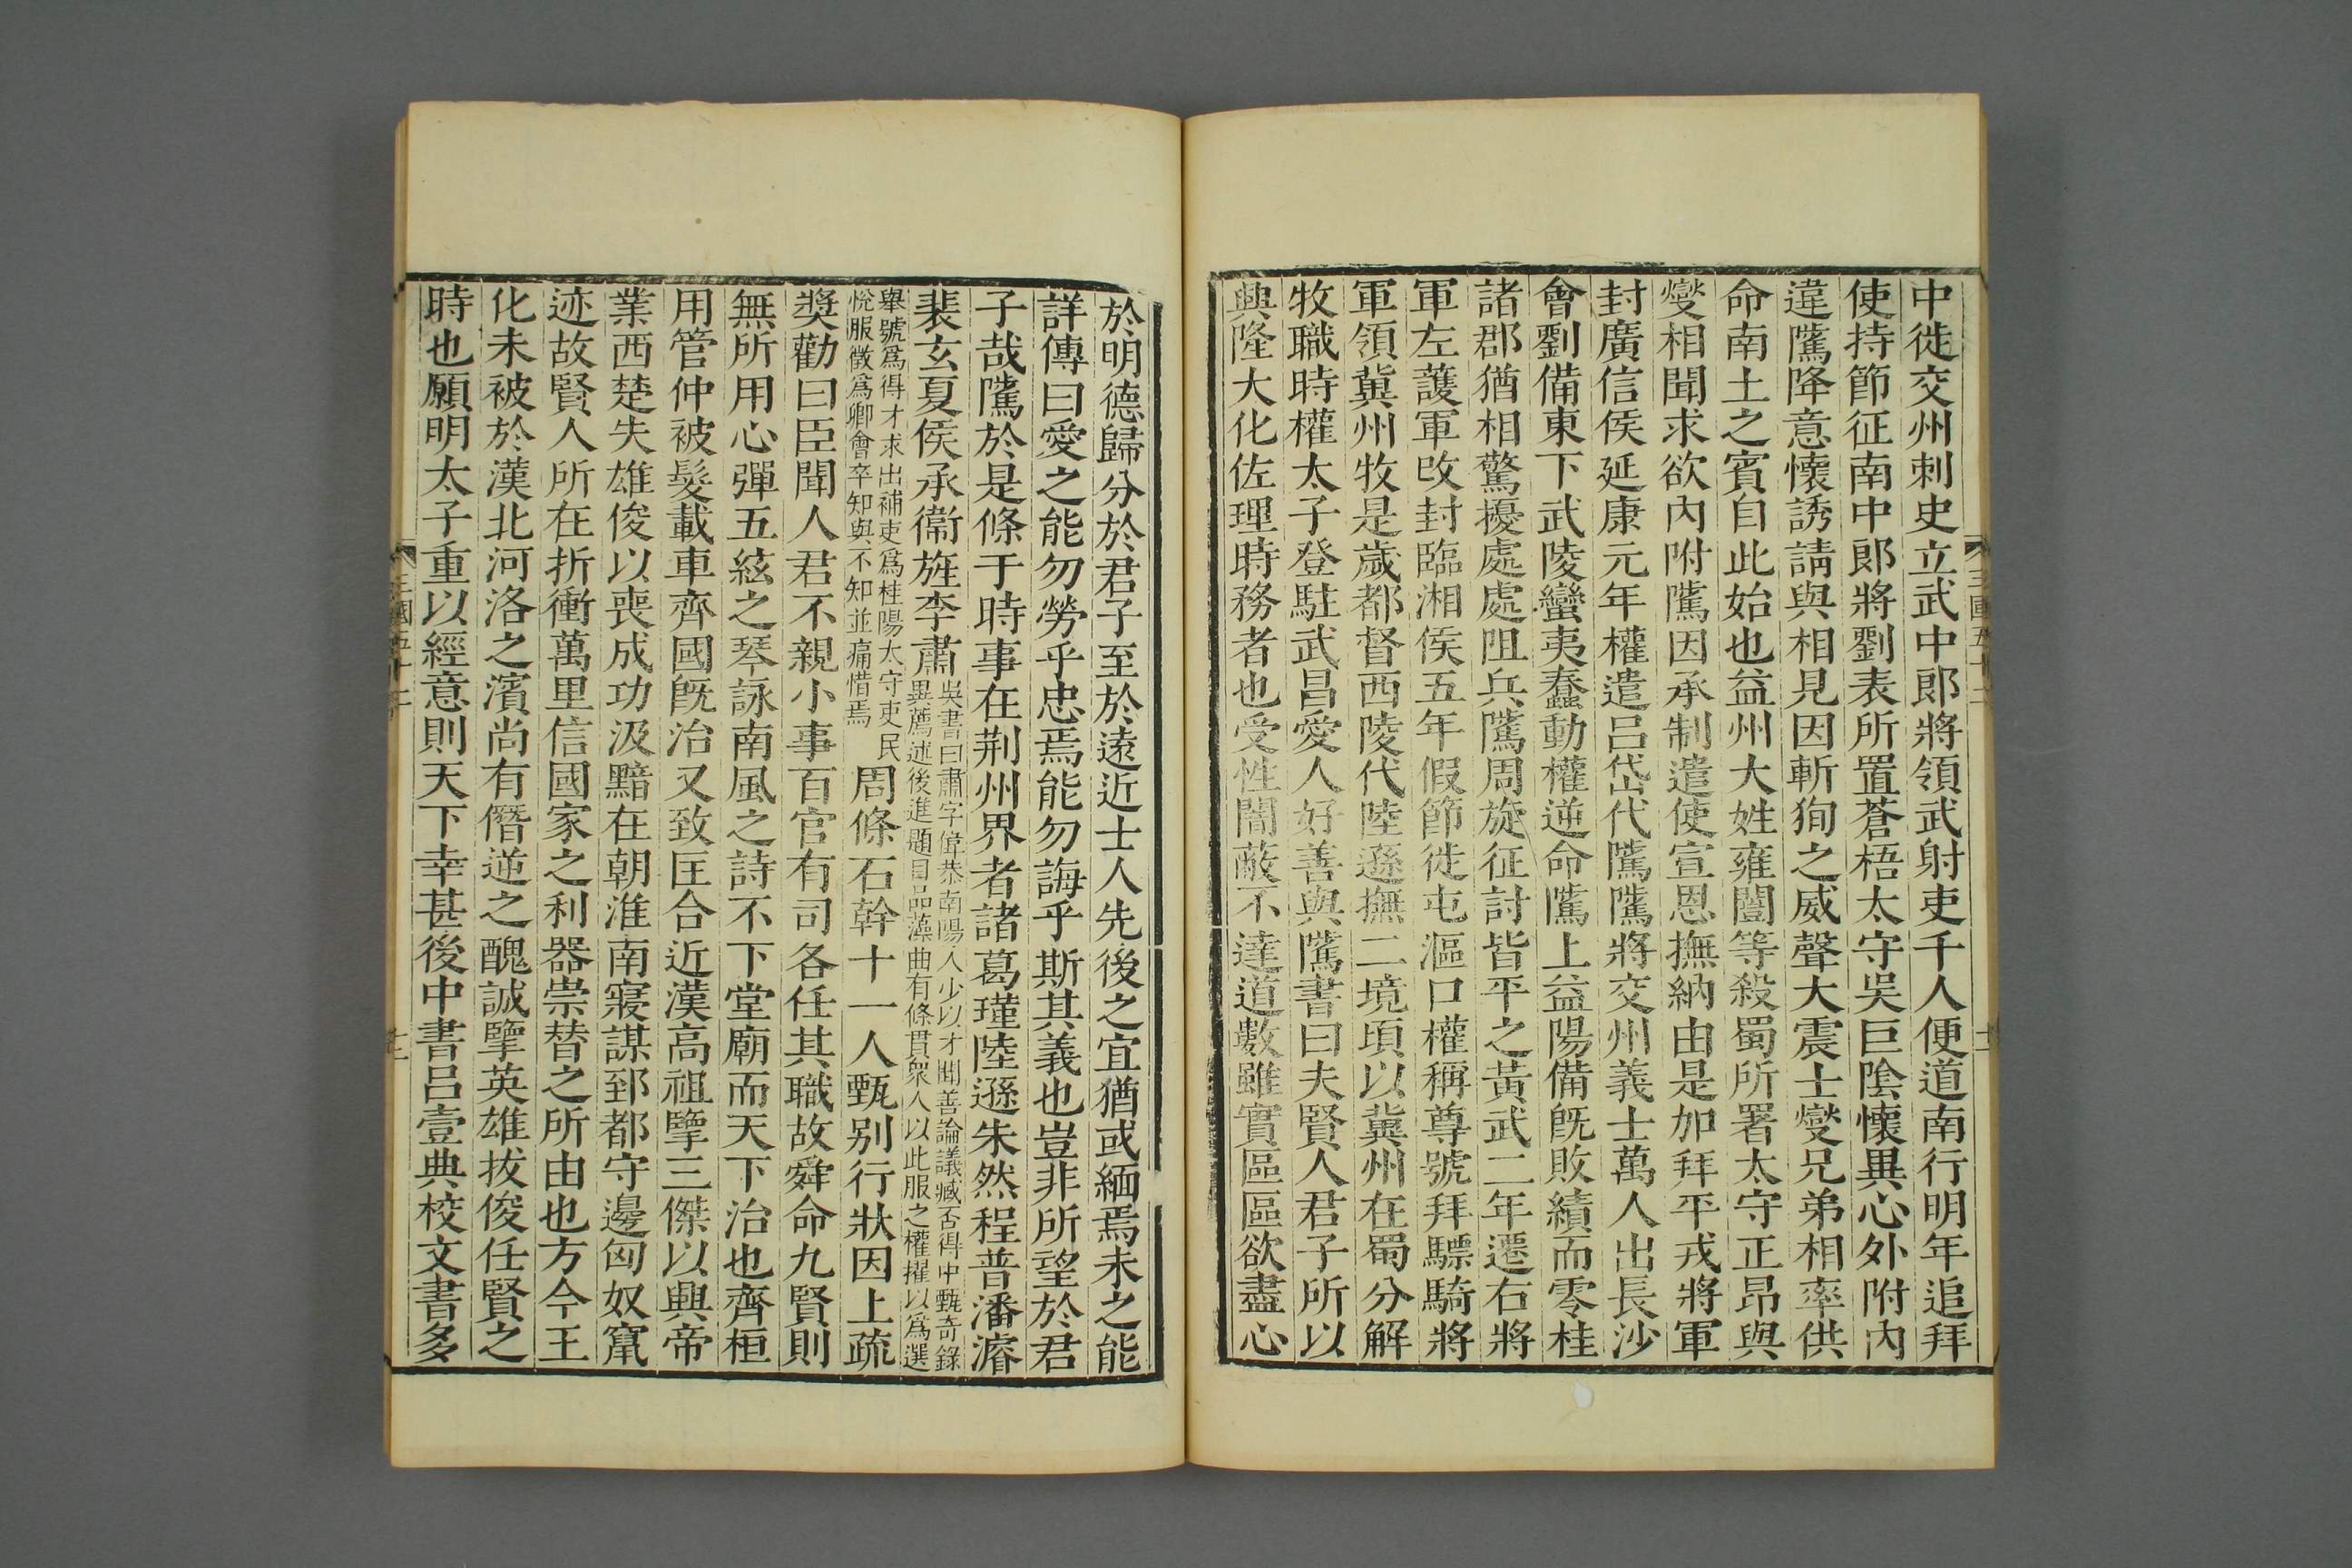 中徙交州刺史立武中郎將領武射吏千人便道南行明年追拜
使持節征南中郎將劉表所置蒼梧太守吳巨陰懷異心外附內
違隲降意懷誘請與相見因斬狥之威聲大震士燮兄弟相率供
命南土之賓自此始也益州大姓雍闓等殺蜀所署太守正昂與
燮相聞求欲內附隲因承制遣使宣恩撫納由是加拜平戎將軍
封廣信侯延康元年權遣呂岱代隲隲將交州義士萬人出長沙
會劉備東下武陵蠻夷蠢動權逆命隲上益陽備旣敗績而零桂
諸郡猶相驚擾處處阻兵隲周旋征討皆平之黃武二年遷右將
軍左護軍改封臨湘侯五年假節徙屯漚口權稱尊號拜驃騎將
軍領冀州牧是歲都督西陵代陸遜撫二境頃以冀州在蜀分解
牧職時權太子登駐武昌愛人好善與隲書曰夫賢人君子所以
興隆大化佐理時務者也受性闇蔽不達道數雖實區區欲盡心
三國五十二
於明德歸分於君子至於遠近士人先後之宜猶或緬焉未之能
詳傳曰愛之能勿勞乎忠焉能勿誨乎斯其義也豈非所望於君
子哉隲於是條于時事在荆州界者諸葛瑾陸遜朱然程普潘濬
裴玄夏侯承衞旌李肅吳書曰肅字偉恭南陽人少以才聞善論議臧否得中甄奇錄
異薦述後進題目品藻曲有條貫衆人以此服之權擢以爲選
舉號爲得才求出補吏爲桂陽太守吏民
悅服徵爲卿會卒知與不知並痛惜焉周條石幹十一人甄别行狀因上疏
奬勸曰臣聞人君不親小事百官有司各任其職故舜命九賢則
無所用心彈五絃之琴詠南風之詩不下堂廟而天下治也齊桓
用管仲被髮載車齊國旣治又致匡合近漢高祖擥三傑以興帝
業西楚失雄俊以喪成功汲黯在朝淮南寢謀郅都守邊匈奴竄
迹故賢人所在折衝萬里信國家之利器崇替之所由也方今王
化未被於漢北河洛之濱尚有僭逆之醜誠擥英雄拔俊任賢之
時也願明太子重以經意則天下幸甚後中書呂壹典校文書多